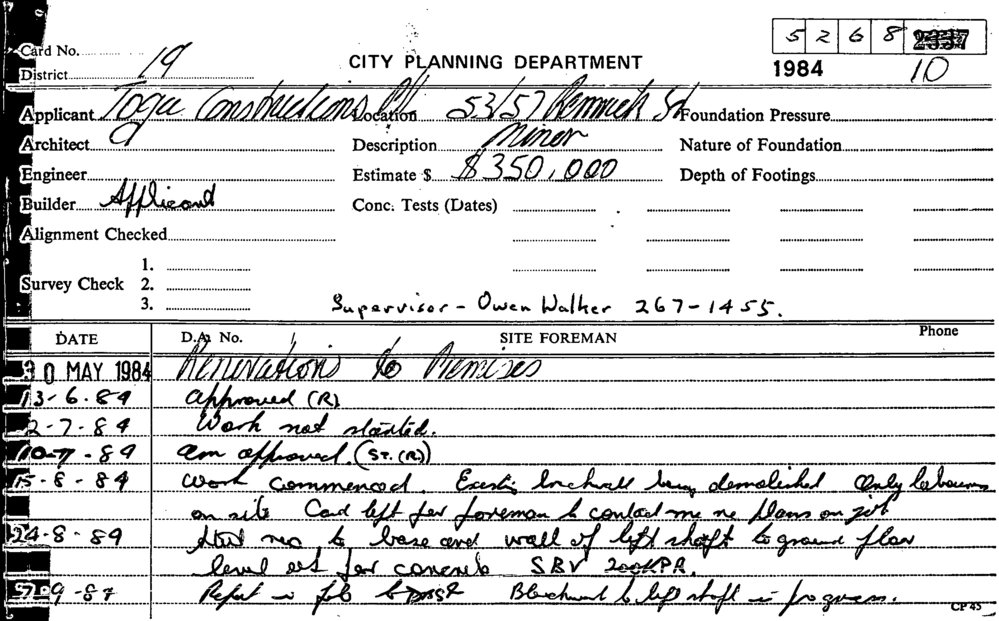 5 2 6 8
Card No.
19
District
CITY PLANNING DEPARTMENT
1984 10
Applicant Toga Constructions P/L Location 53/57 Renwick St Foundation Pressure
Architect Description Minor Nature of Foundation
Engineer Estimate $ $350,000 Depth of Footings
Builder Applicant Conc. Tests (Dates)
Alignment Checked
1.
Survey Check 2.
3. Supervisor - Owen Walker 267-1455.
DATE D.A. No. SITE FOREMAN Phone
30 MAY 1984 Renovations to Premises
13-6-84 approved (R)
2-7-84 Work not started.
10-7-84 am approved. (ST. (R))
15-8-84 Work commenced. Existing brickwall being demolished Only labourers
on site Card left for foreman to contact me re plans on job
24-8-84 Steel reo to base and wall of lift shaft to ground floor
level set for concrete SBV 200KPA.
9-87 Report job Blockwork to lift shaft in progress.
CP 45